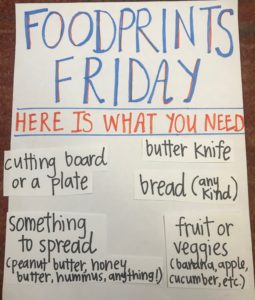 FOODPRINTS
FRIDAY
HERE IS WHAT YOU NEED
cutting board
or a plate
butter knife
bread (any
kind)
something
to spread
(peanut butter, honey
butter, hummus, anything!)
fruit or
veggies
(banana, apple,
cucumber, etc.)